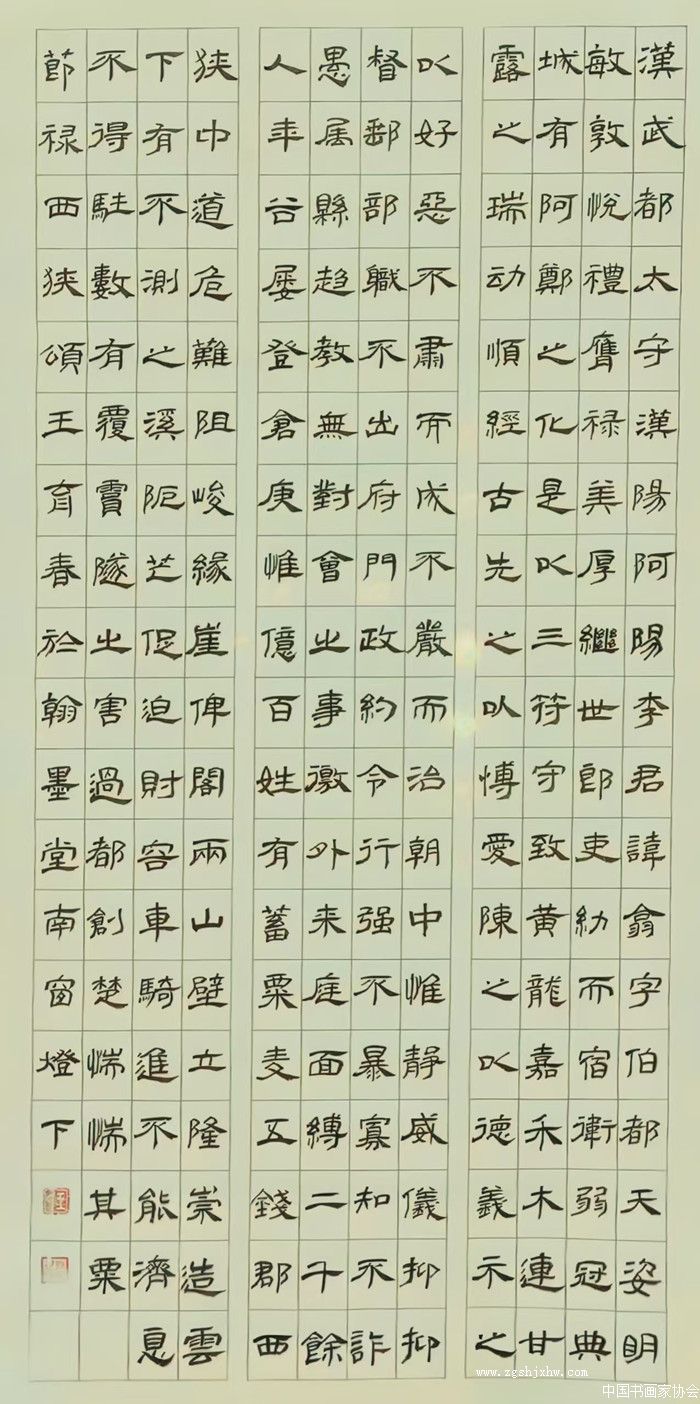 漢武都太守漢陽阿陽李君諱翕字伯都天姿明
敏敦悅禮膺禄美厚繼世郎吏幼而宿衛弱冠典
城有阿鄭之化是以三符守致黄龍嘉禾木連甘
露之瑞动順經古先之以博愛陳之以德義示之
以好惡不肅而成不嚴而治朝中惟静威儀抑抑
督郵部職不出府門政約令行强不暴寡知不詐
愚属縣趋教無對會之事徼外来庭面縛二千餘
人年谷屡登倉庚惟億百姓有蓄粟麦五錢郡西
狭中道危難阻峻緣崖俾閣兩山壁立隆崇造雲
下有不測之溪阨芒促迫財容車騎進不能濟息
不得駐數有覆霣隧之害過都創楚惴惴其粟
節禄西狭頌王育春於翰墨堂南窗燈下
www.zgshjxhw.com
中国书画家协会